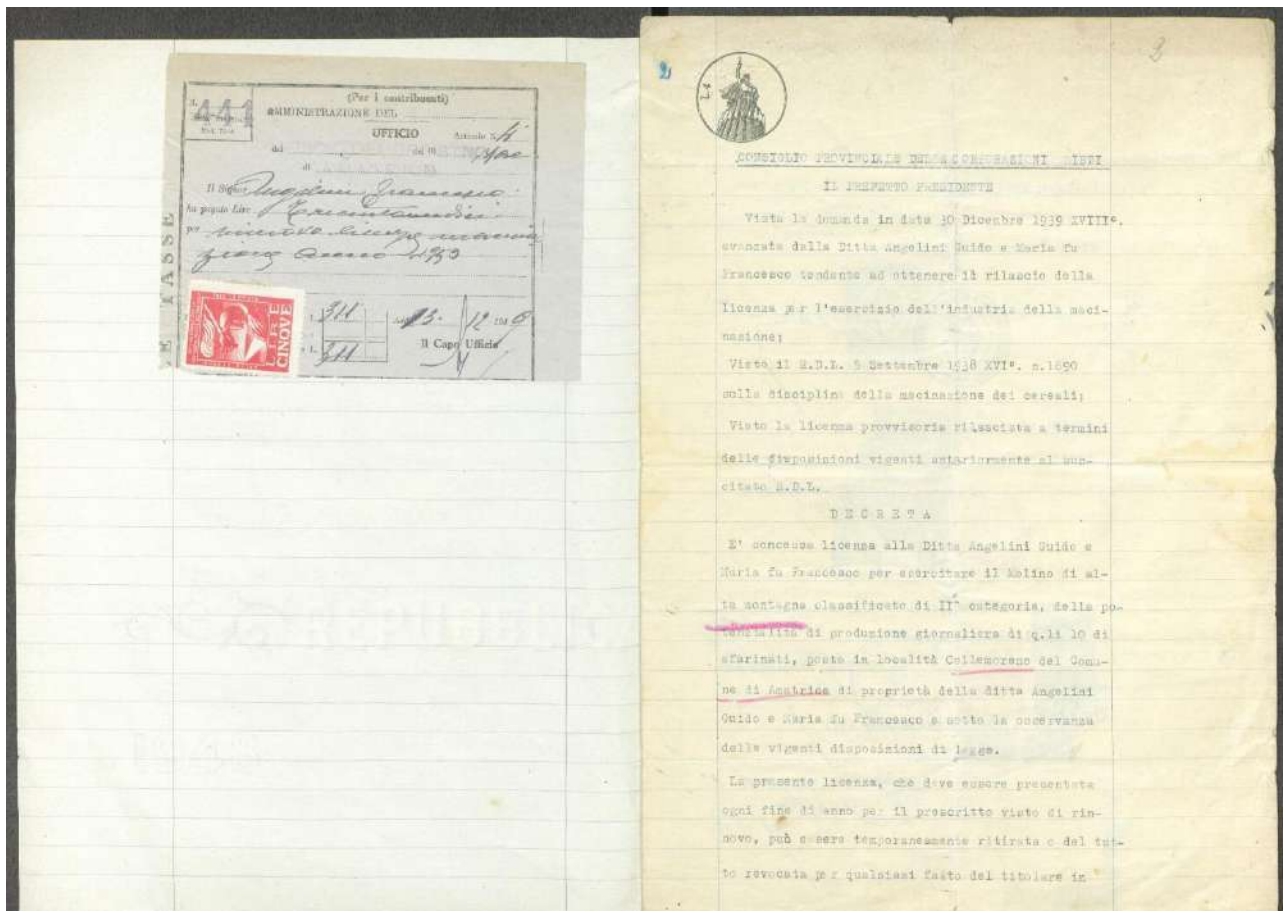 (Per i contribuenti)
441
AMMINISTRAZIONE DEL
UFFICIO Articolo N. 4
del
di
Il Sig. Angelini Francesco
ha pagato Lire Trecentoundici
per rinnovo licenza macina
zione anno 1950
E TASSE
LIRE
CINQUE
L. 311
13 12
L. 311
Il Capo Ufficio
2
CONSIGLIO PROVINCIALE DELLE CORPORAZIONI RIETI
IL PREFETTO PRESIDENTE
Vista la domanda in data 30 Dicembre 1939 XVIII°.
avanzata dalla Ditta Angelini Guido e Maria fu
Francesco tendente ad ottenere il rilascio della
licenza per l'esercizio dell'industria della maci-
nazione;
Visto il R.D.L. 5 Settembre 1938 XVI°. n.1890
sulla disciplina della macinazione dei cereali;
Visto la licenza provvisoria rilasciata a termini
delle disposizioni vigenti anteriormente al sus-
citato R.D.L.
D E C R E T A
E' concessa licenza alla Ditta Angelini Guido e
Maria fu Francesco per esercitare il Molino di al-
ta montagna classificato di II^ categoria, della po-
tenzialità di produzione giornaliera di q.li 10 di
sfarinati, posto in località Collemoreno del Comu-
ne di Amatrice di proprietà della ditta Angelini
Guido e Maria fu Francesco e sotto la osservanza
delle vigenti disposizioni di legge.
La presente licenza, che deve essere presentata
ogni fine di anno per il prescritto visto di rin-
novo, può essere temporaneamente ritirata o del tut-
to revocata per qualsiasi fatto del titolare in